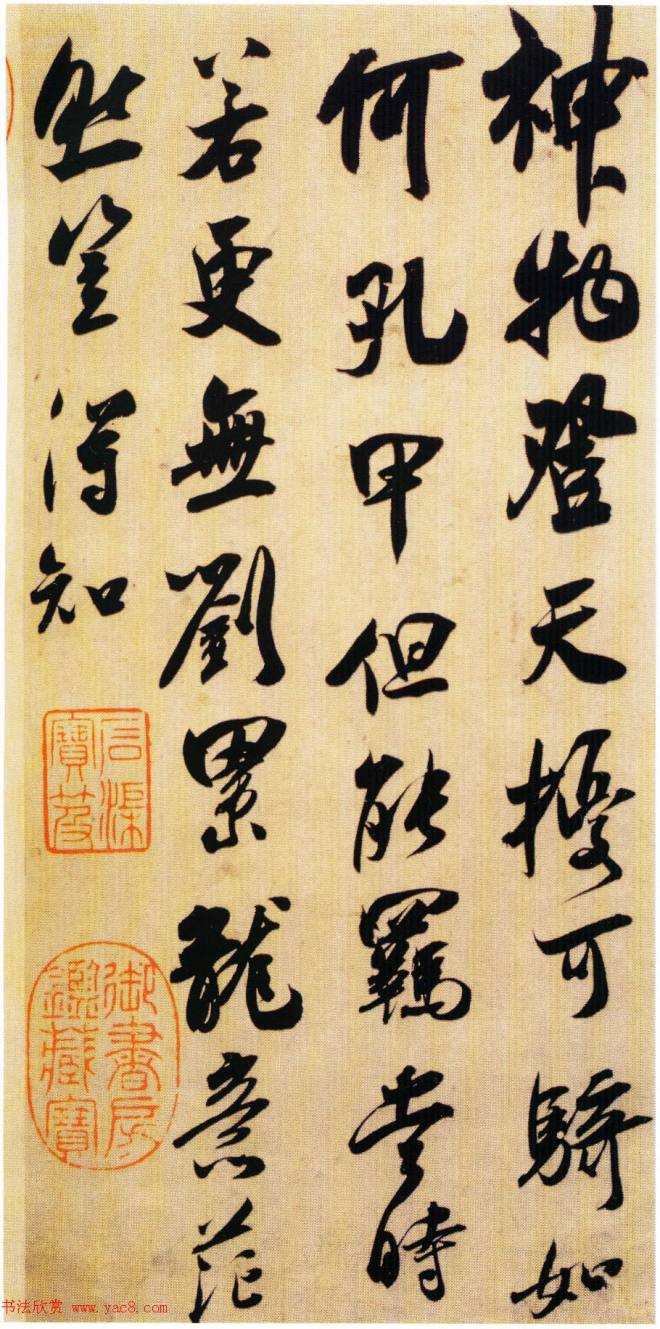 神物登天擾可騎如
何孔甲但能羈當時
若更無劉累龍意茫
然豈得知
石渠
寶笈
御書房
鑑藏寶
书法欣赏 www.yac8.com